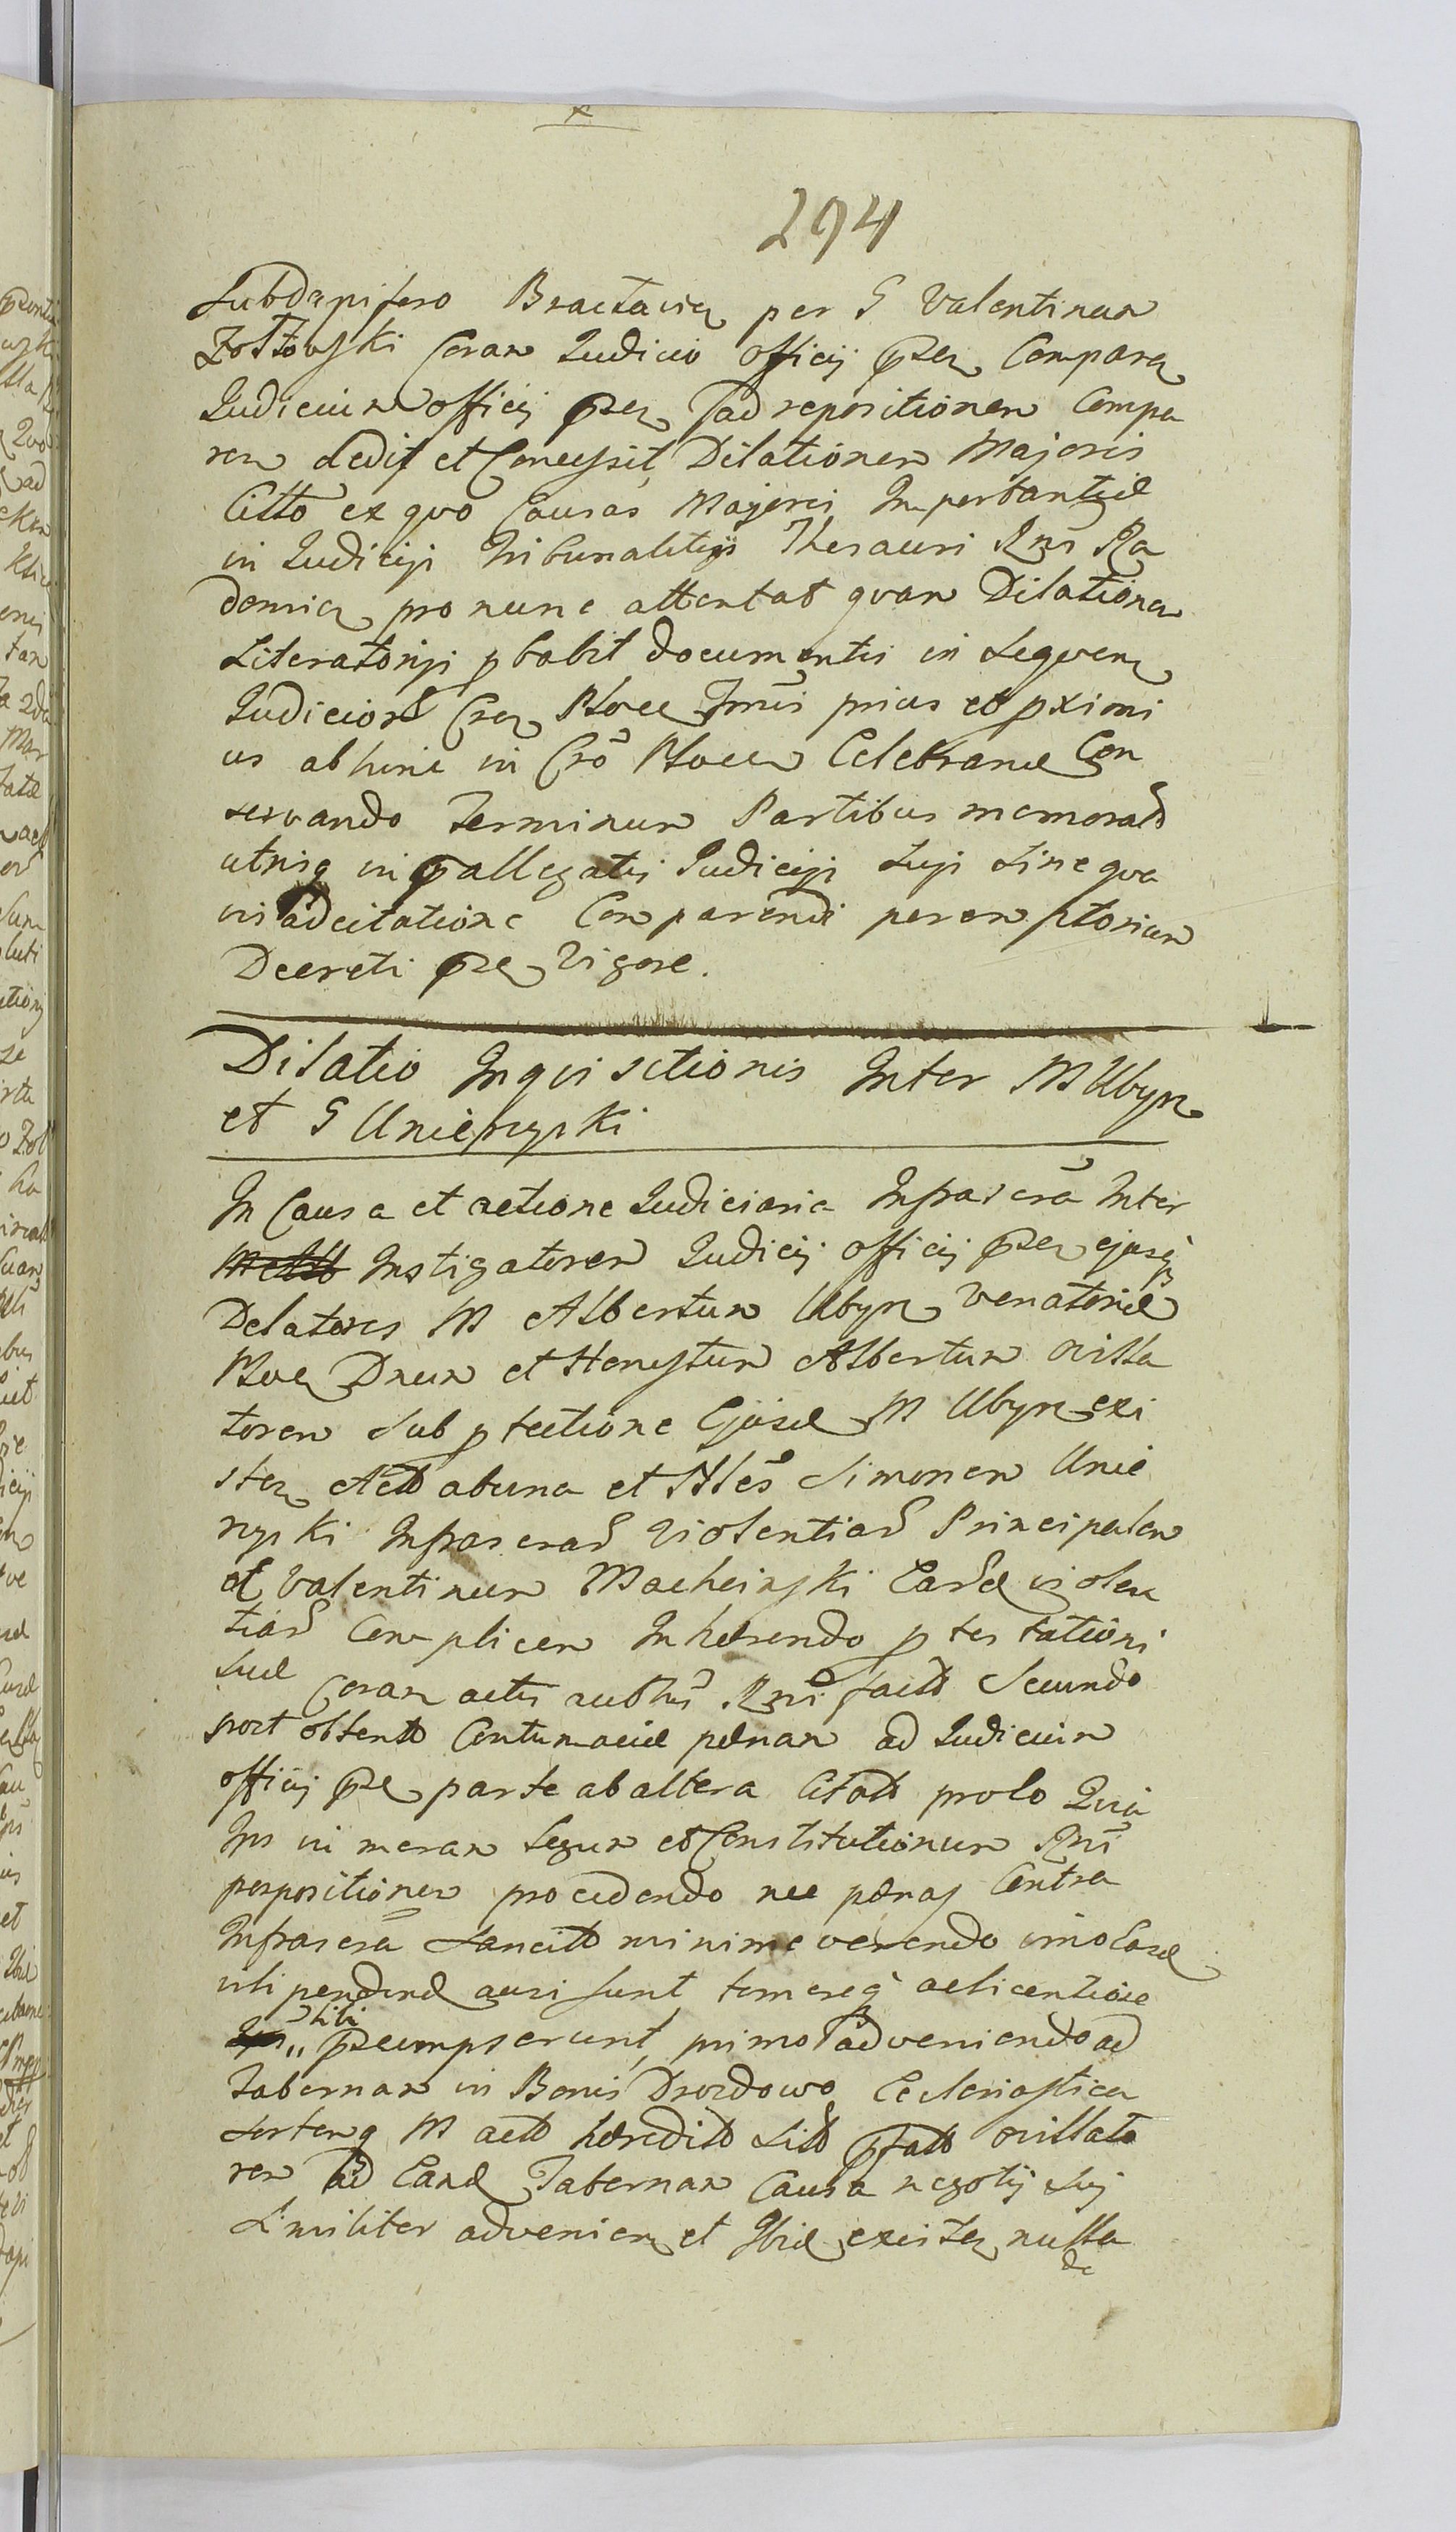 294
Subdapifero Bractavien per G Valentinum
Zołtowski Coram Judicio Officij pszen Comparen
Judicium officij pszen ad repositionem Compa
ren dedit et Concessit Dilationem Majoris
Citto ex quo Causas Majoris Importantiæ
in Judicijs Tribunalitijs Thesauri Rgni Ra
domien pro nunc attentat quam Dilationem
Literatorijs pbabit documentis in Sequen
Judiciorū Cren Ploceñ Tmis prius et pximi
us abhinc in Cro Ploceñ Celebrand Con
servando Terminum Partibus memorad
utrisq in pallegatis Judicijs Suji Sine qua
vis adcitatione Comparendi peremptorium
Decreti psze vigore.
Dilatio Inqvisitionis Inter M Ubysz
et G Unierzyski
In Causa et actione Judiciaria Infrascra Inter
Instigatorem Judicij officij pszen ejusq
Delatores M Albertum Ubysz venatorid
Ploceñ Dnum et Honestum Albertum villa
torem Sub ptectione Ejusd M Ubysz exi
sten Actt abuna et Nles Simonem Unie
ryski Infrascrarū violentiarū Principalem
et Valentinum Macheinski Earūd violen
tiarū Complicem Inhærendo ptestationi
Suæ Coram actis authis Rgni factt Secundo
post obtentt Contumaciæ pænam ad Judicium
officij psze parte ab altera Citatt prolo Quia
Ips in meram Legum et Constitutionum Rgni
perpositionem procedendo nec pænas Contra
Infrascra Sancitt minime verendo imo Easd
vilipendend ausi Sunt temereq ac licentiose
Sibi pszeumpserunt, primo adveniendo ad
Tabernam in Bonis Drozdowo Ecclesiastica
Sortenq M actt hæreditt Sitt pfatt villato
rem ad Eand Tabernam Causa negotij Sui
Similiter advenien et Ibid existen nulla
de